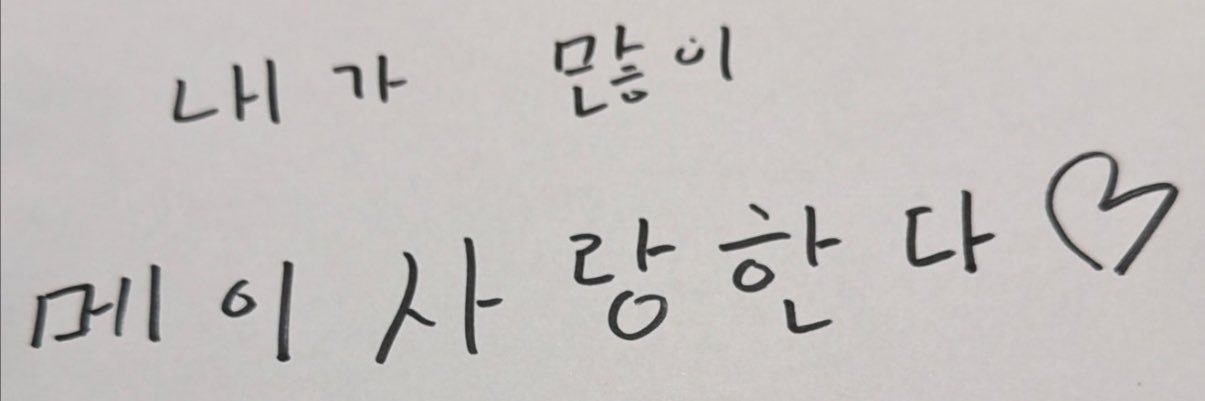 내가 많이
메이사랑한다♡